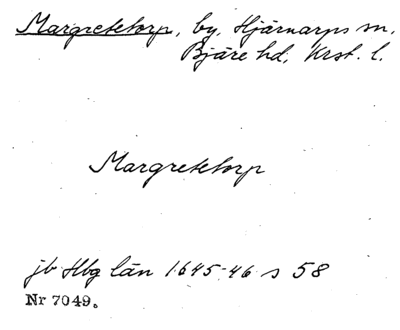 Margretetorp, by, Hjärnarps sn,
Bjäre hd, Krst. l.
Margretetorp
jb Hbg län 1645-46 s 58
Nr 7049.